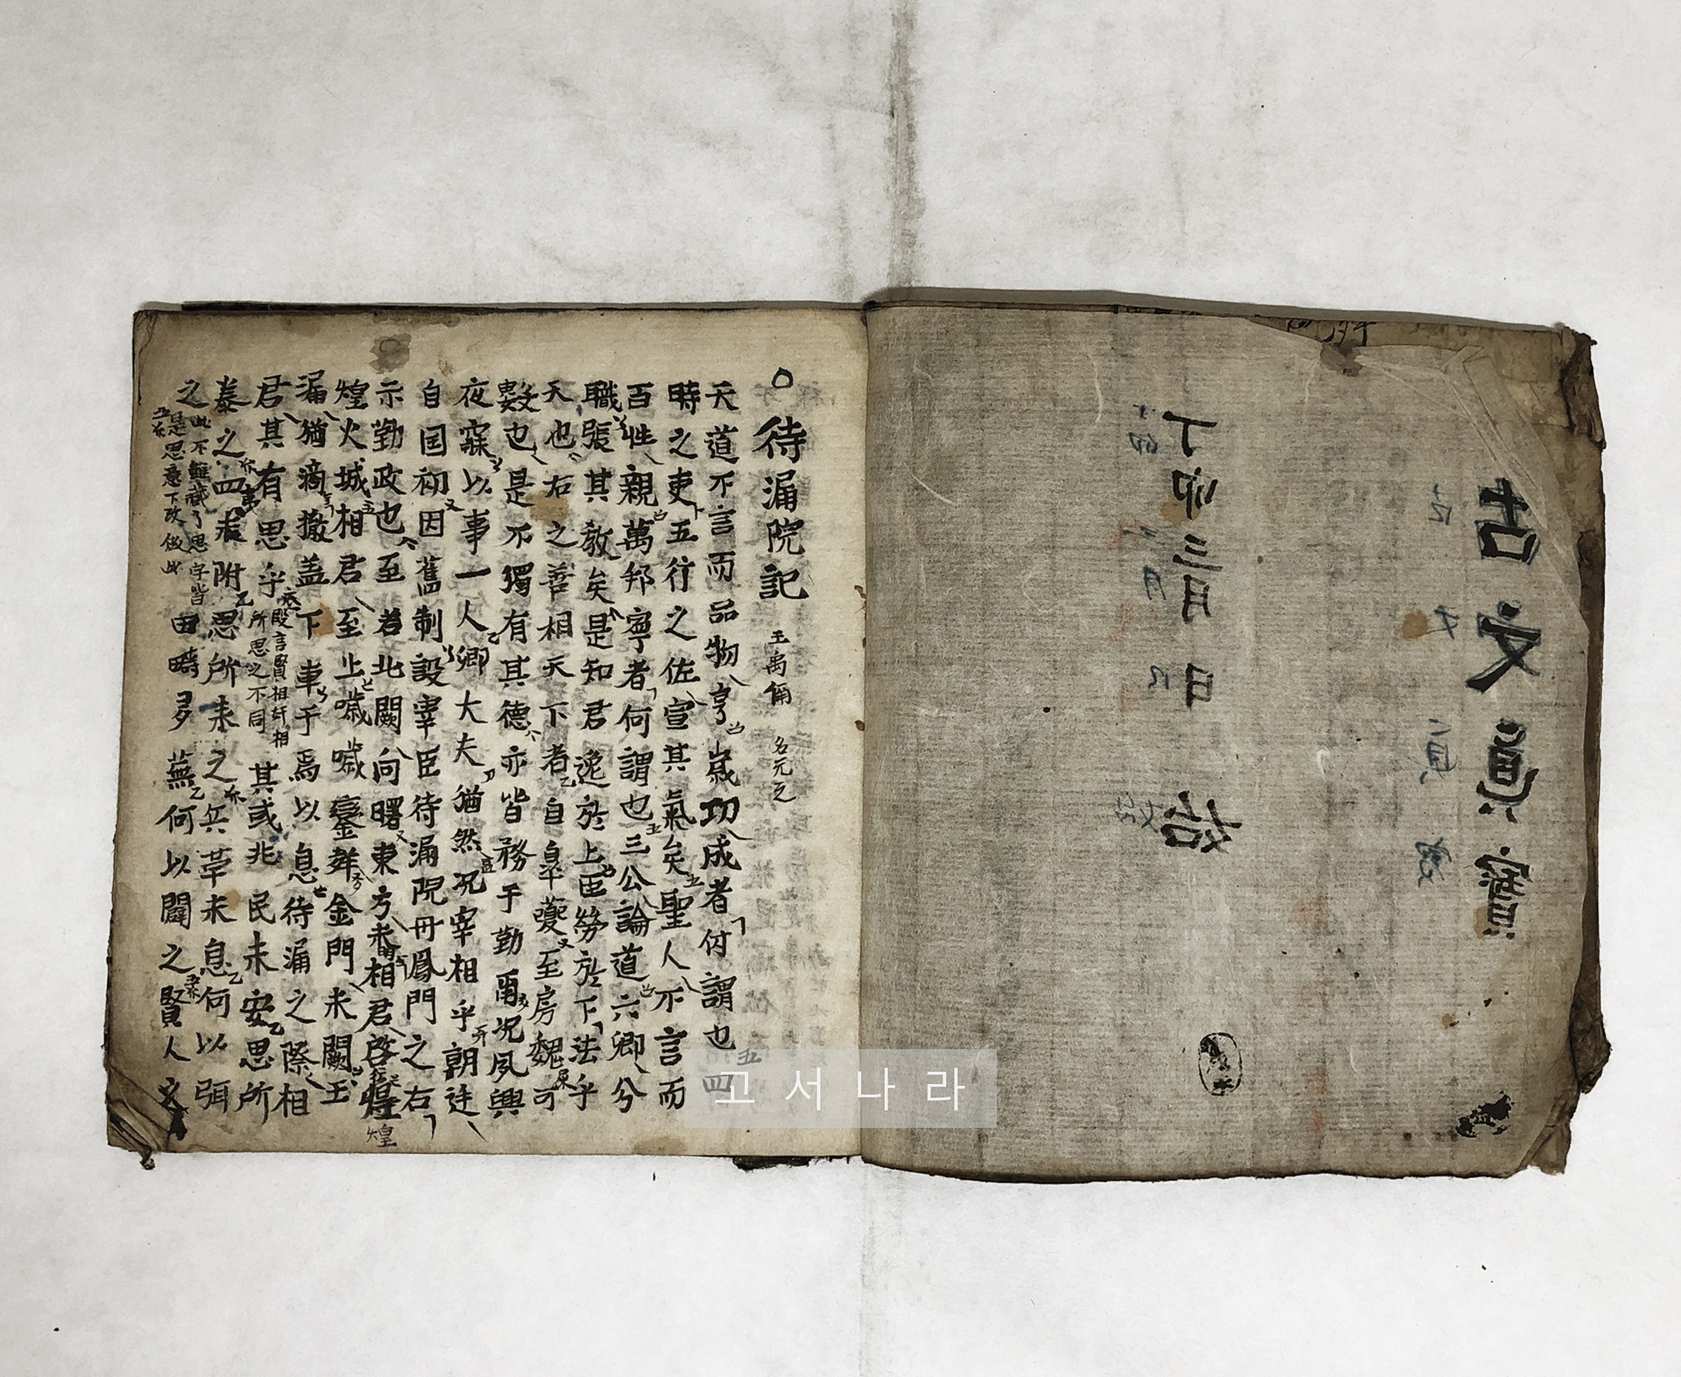 古文眞寶
丁卯三月 日 始
○待漏院記 王禹偁 名元之
天道不言而品物亨歲功成者何謂也四
時之吏五行之佐宣其氣矣聖人不言而
百姓親萬邦寧者何謂也三公論道六卿分
職張其敎矣是知君逸於上臣勞於下法乎
天也古之善相天下者自皐夔至房魏可
數也是不獨有其德亦皆務于勤爾况夙興
夜寐以事一人卿大夫猶然况宰相乎朝廷
自国初因舊制設宰臣待漏院丹鳳門之右
示勤政也至若北闕向曙東方未相君啓行煌
煌火城相君至止噦噦鑾聲金門未闢玉
漏猶滴撤盖下車于焉以息待漏之際相
君其有思乎 段言賢相奸相所思之不同 其或兆民未安思所
泰之四夷未附思所來之兵革未息何以弭
之 此不了思字皆是思意下改倣此 田疇多蕪何以闢之賢人
고서나라